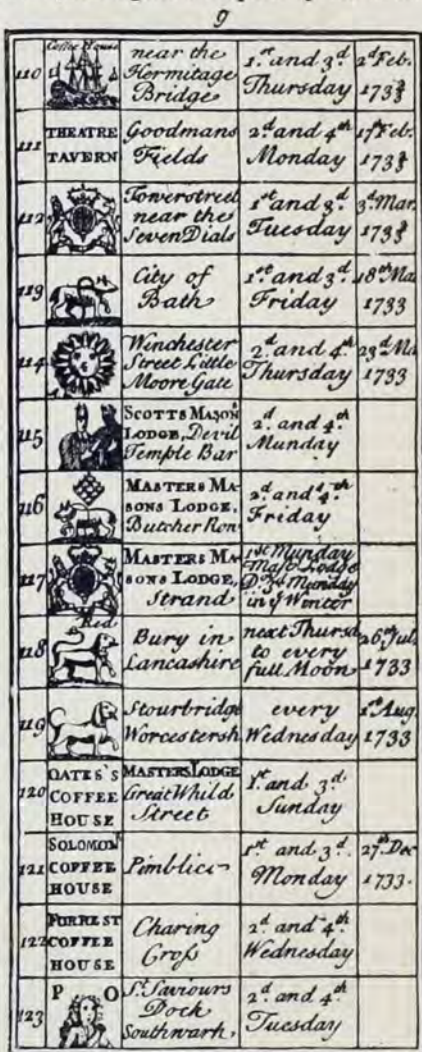 9
110 Coffee House near the Hermitage Bridge 1.st and 3.d Thursday 2d Feb. 1733
111 THEATRE TAVERN Goodmans Fields 2.d and 4th Monday 17th Feb. 1733
112 Towerstreet near the Seven Dials 1st and 3.d Tuesday 3.d Mar. 1733
113 City of Bath 1st and 3.d Friday 18th Ma 1733
114 Winchester Street Little Moore Gate 2.d and 4.th Thursday 23d Ma 1733
115 SCOTTS MASONs LODGE, Devil Temple Bar 2.d and 4.th Munday
116 MASTERS MASONS LODGE, Butcher Row 2.d and 4.th Friday
117 MASTERS MASONS LODGE, Strand 1st Munday Mast Lodge D.o 3d Munday in ye Winter
118 Red Bury in Lancashire next Thursd to every full Moon 26th Jul. 1733
119 Stourbridge Worcestersh. every Wednesday 1st Aug. 1733
120 OATES'S COFFEE HOUSE MASTERS LODGE Great Whild Street 1st and 3.d Sunday
121 SOLOMONs COFFEE HOUSE Pimblico 1st and 3.d Monday 27th Dec 1733.
122 FORREST COFFEE HOUSE Charing Croſs 2.d and 4th Wednesday
123 P O St. Saviours Dock Southwark, 2.d and 4.th Tuesday